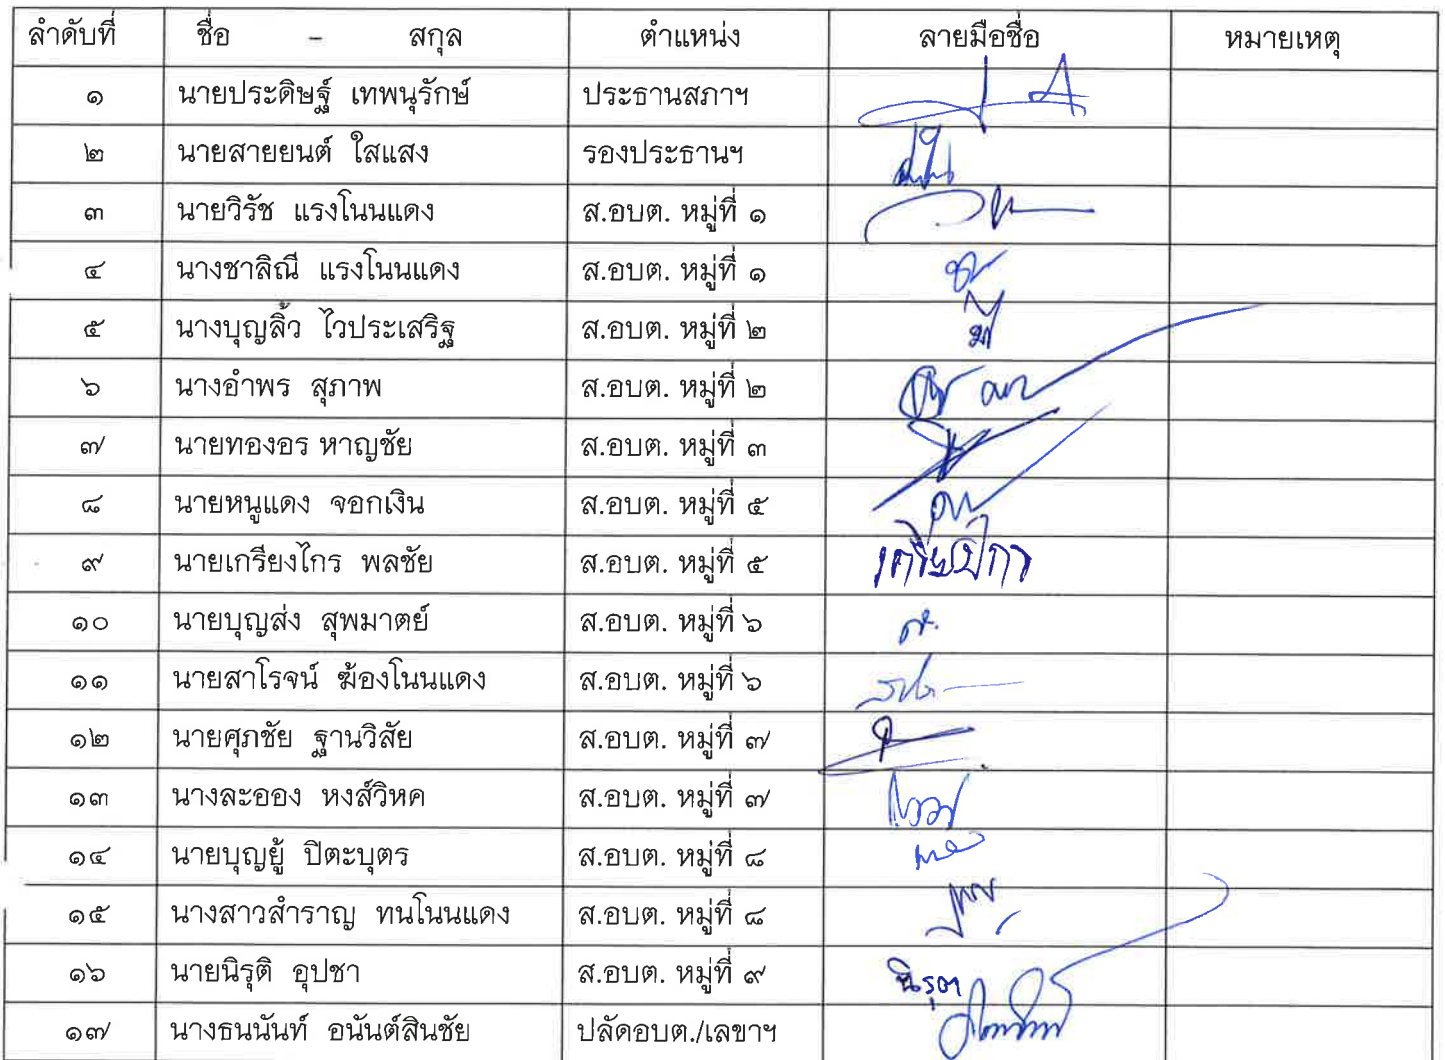 ลำดับที่ ชื่อ - สกุล ตำแหน่ง ลายมือชื่อ หมายเหตุ
๑ นายประดิษฐ์ เทพนุรักษ์ ประธานสภาฯ
๒ นายสายยนต์ ใสแสง รองประธานฯ
๓ นายวิรัช แรงโนนแดง ส.อบต. หมู่ที่ ๑
๔ นางชาลิณี แรงโนนแดง ส.อบต. หมู่ที่ ๑
๕ นางบุญลิ้ว ไวประเสริฐ ส.อบต. หมู่ที่ ๒
๖ นางอำพร สุภาพ ส.อบต. หมู่ที่ ๒
๗ นายทองอร หาญชัย ส.อบต. หมู่ที่ ๓
๘ นายหนูแดง จอกเงิน ส.อบต. หมู่ที่ ๕
๙ นายเกรียงไกร พลชัย ส.อบต. หมู่ที่ ๕ เกรียงไกร
๑๐ นายบุญส่ง สุพมาตย์ ส.อบต. หมู่ที่ ๖
๑๑ นายสาโรจน์ ฆ้องโนนแดง ส.อบต. หมู่ที่ ๖
๑๒ นายศุภชัย ฐานวิสัย ส.อบต. หมู่ที่ ๗
๑๓ นางละออง หงส์วิหค ส.อบต. หมู่ที่ ๗
๑๔ นายบุญยู้ ปิตะบุตร ส.อบต. หมู่ที่ ๘
๑๕ นางสาวสำราญ ทนโนนแดง ส.อบต. หมู่ที่ ๘
๑๖ นายนิรุติ อุปชา ส.อบต. หมู่ที่ ๙
๑๗ นางธนนันท์ อนันต์สินชัย ปลัดอบต./เลขาฯ